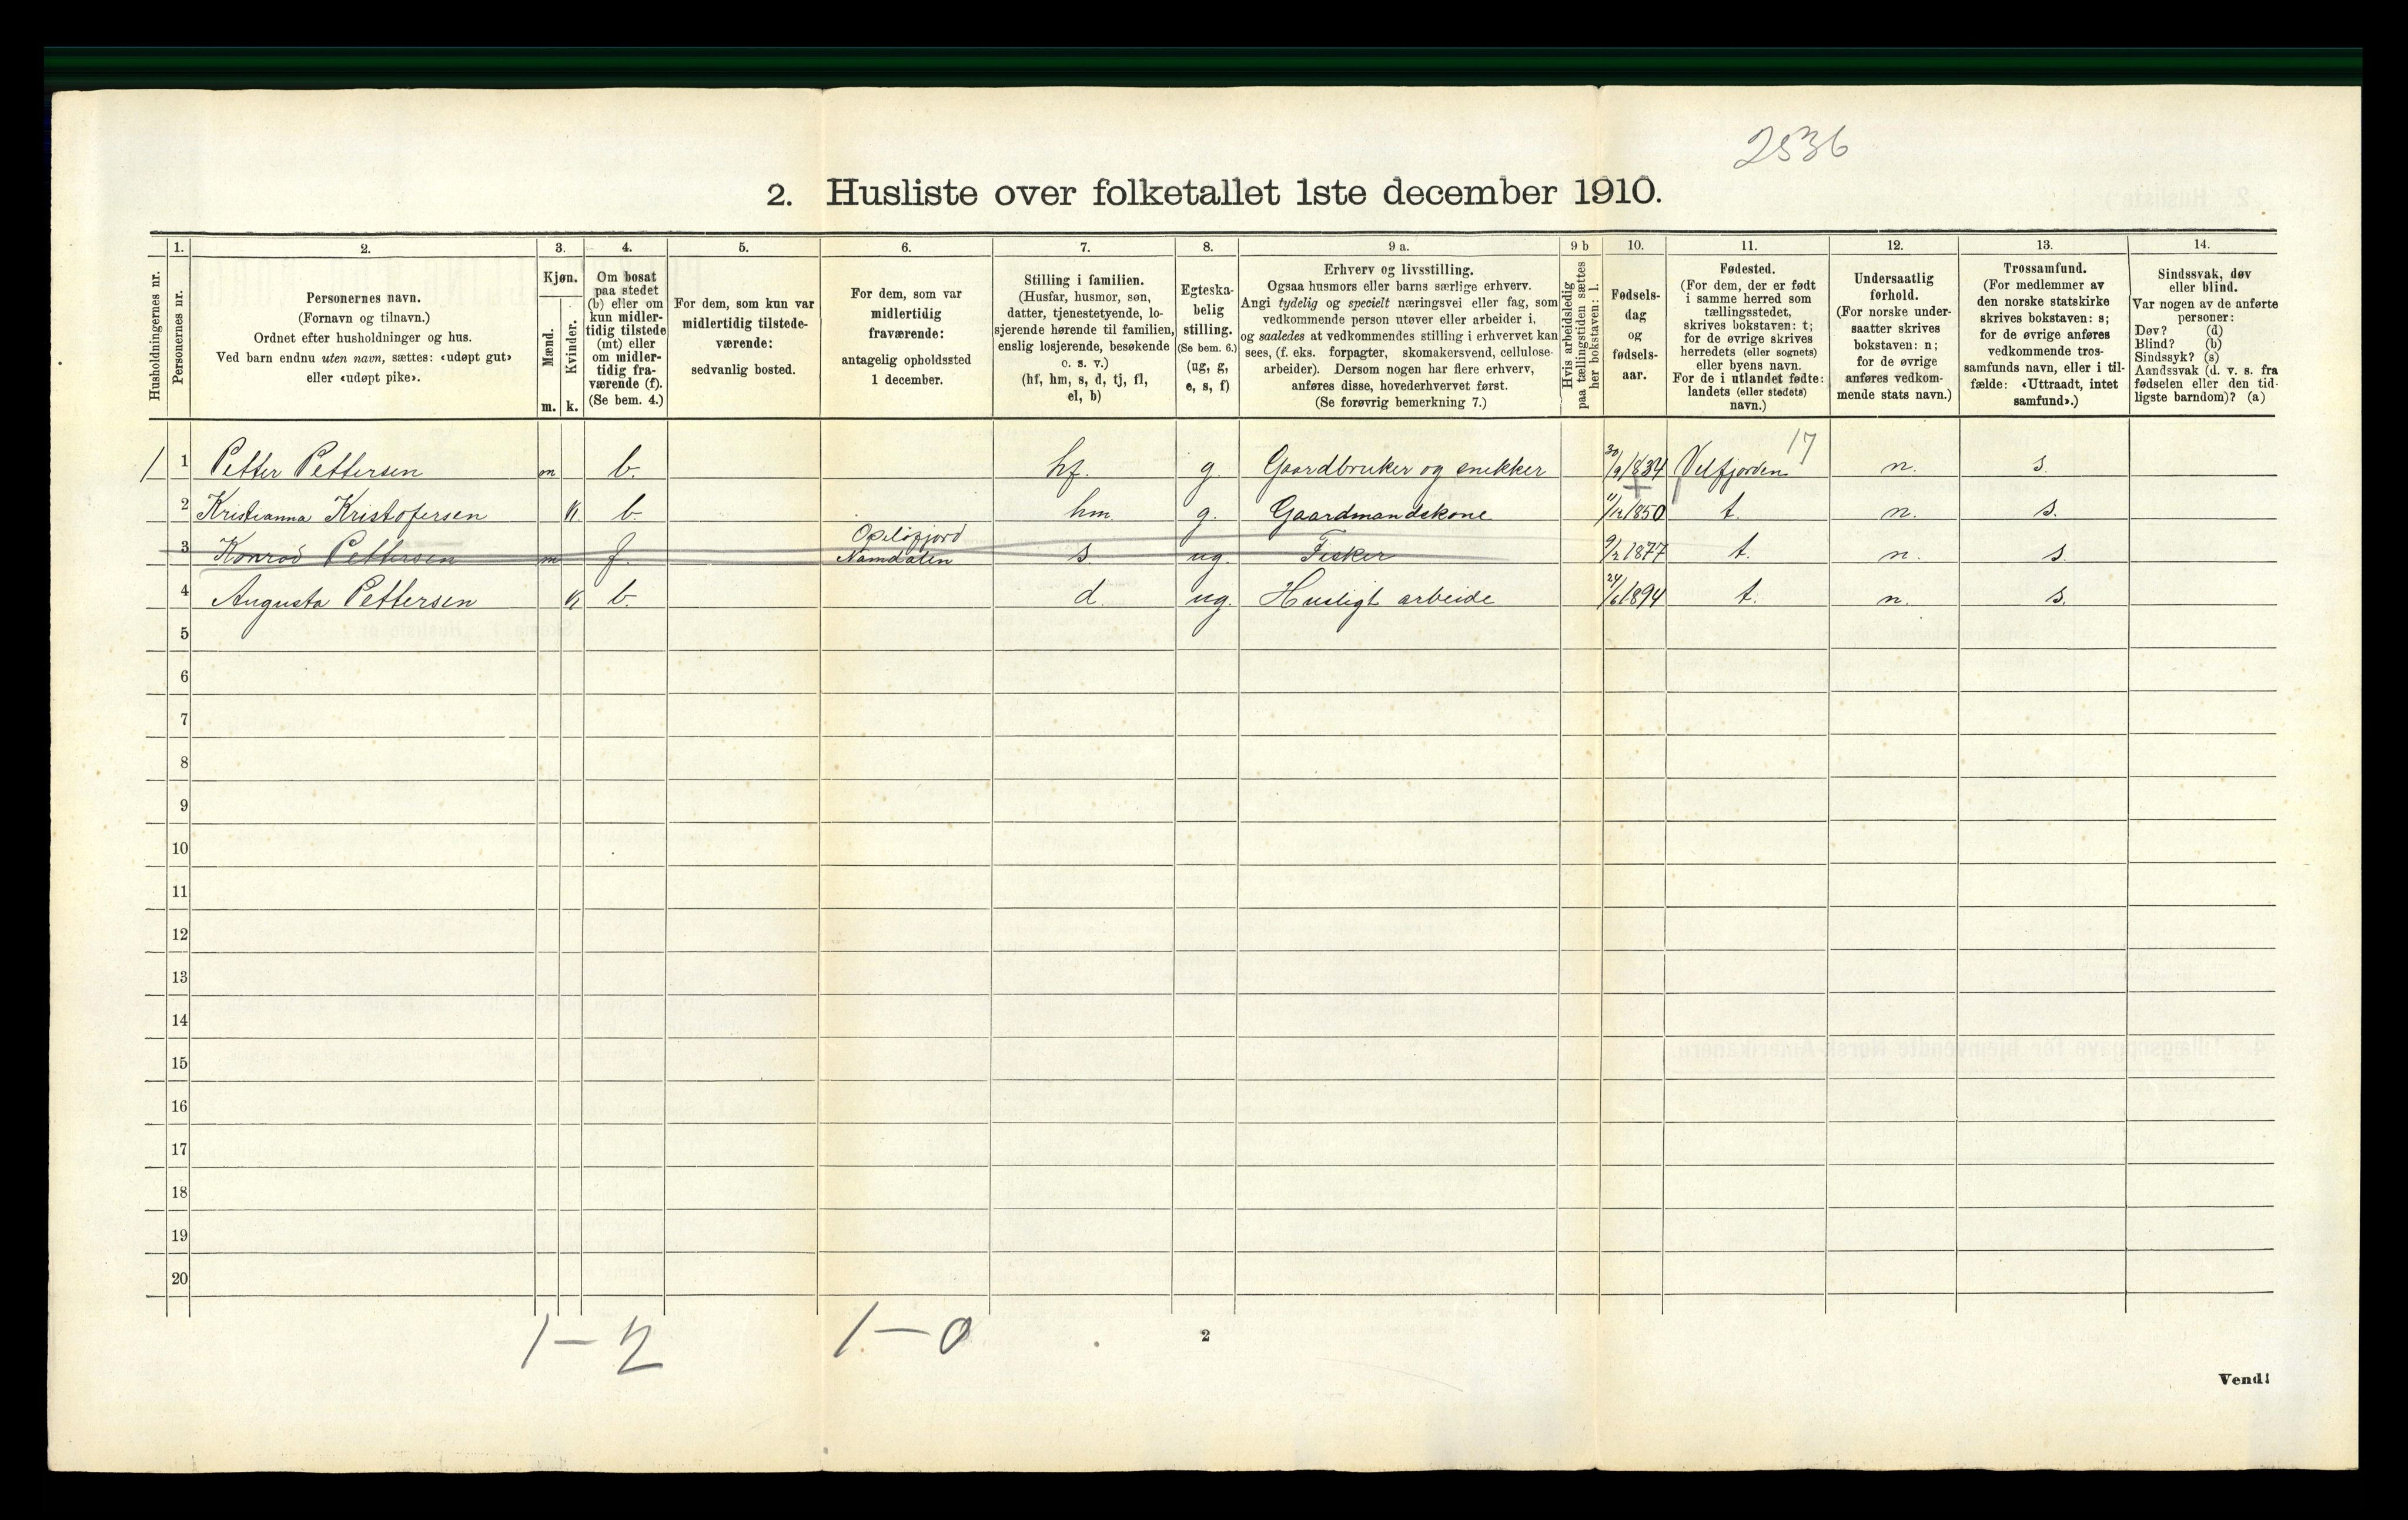 2536
2. Husliste over folketallet 1ste december 1910.
Husholdningernes nr.
1.
Personernes nr.
2.
Personernes navn.
(Fornavn og tilnavn.)
Ordnet efter husholdninger og hus.
Ved barn endnu uten navn, sættes: «udøpt gut»
eller «udøpt pike».
3.
Kjøn.
Mænd.
Kvinder.
m. k.
4.
Om bosat
paa stedet
(b) eller om
kun midler-
tidig tilstede
(mt) eller
om midler-
tidig fra-
værende (f).
(Se bem. 4.)
5.
For dem, som kun var
midlertidig tilstede-
værende:
sedvanlig bosted.
6.
For dem, som var
midlertidig
fraværende:
antagelig opholdssted
1 december.
7.
Stilling i familien.
(Husfar, husmor, søn,
datter, tjenestetyende, lo-
sjerende hørende til familien,
enslig losjerende, besøkende
o. s. v.)
(hf, hm, s, d, tj, fl,
el, b)
8.
Egteska-
belig
stilling.
(Se bem. 6.)
(ug, g,
e, s, f)
9 a.
Erhverv og livsstilling.
Ogsaa husmors eller barns særlige erhverv.
Angi tydelig og specielt næringsvei eller fag, som
vedkommende person utøver eller arbeider i,
og saaledes at vedkommendes stilling i erhvervet kan
sees, (f. eks. forpagter, skomakersvend, cellulose-
arbeider). Dersom nogen har flere erhverv,
anføres disse, hovederhvervet først.
(Se forøvrig bemerkning 7.)
9 b
Hvis arbeidsledig
paa tællingstiden sættes
her bokstaven: l.
10.
Fødsels-
dag
og
fødsels-
aar.
11.
Fødested.
(For dem, der er født
i samme herred som
tællingsstedet,
skrives bokstaven: t;
for de øvrige skrives
herredets (eller sognets)
eller byens navn.
For de i utlandet fødte:
landets (eller stedets)
navn.)
12.
Undersaatlig
forhold.
(For norske under-
saatter skrives
bokstaven: n;
for de øvrige
anføres vedkom-
mende stats navn.)
13.
Trossamfund.
(For medlemmer av
den norske statskirke
skrives bokstaven: s;
for de øvrige anføres
vedkommende tros-
samfunds navn, eller i til-
fælde: «Uttraadt, intet
samfund».)
14.
Sindssvak, døv
eller blind.
Var nogen av de anførte
personer:
Døv? (d)
Blind? (b)
Sindssyk? (s)
Aandssvak (d. v. s. fra
fødselen eller den tid-
ligste barndom)? (a)
17
1 1 Petter Pettersen m b. hf. g. Gaardbruker og snekker 30/9 1834 Velfjorden n. s.
2 Kristianna Kristofersen k. b. hm. g. Gaardmandskone 11/12 1850 t. n. s.
3 Konrad Pettersen m f. Opløfjord
Namdalen s. ug. Fisker 9/2 1877 t. n. s.
4 Augusta Pettersen k b. d. ug. Husligt arbeide 24/6 1894 t. n. s.
5
6
7
8
9
10
11
12
13
14
15
16
17
18
19
20
1-2 1-0
2
Vend!